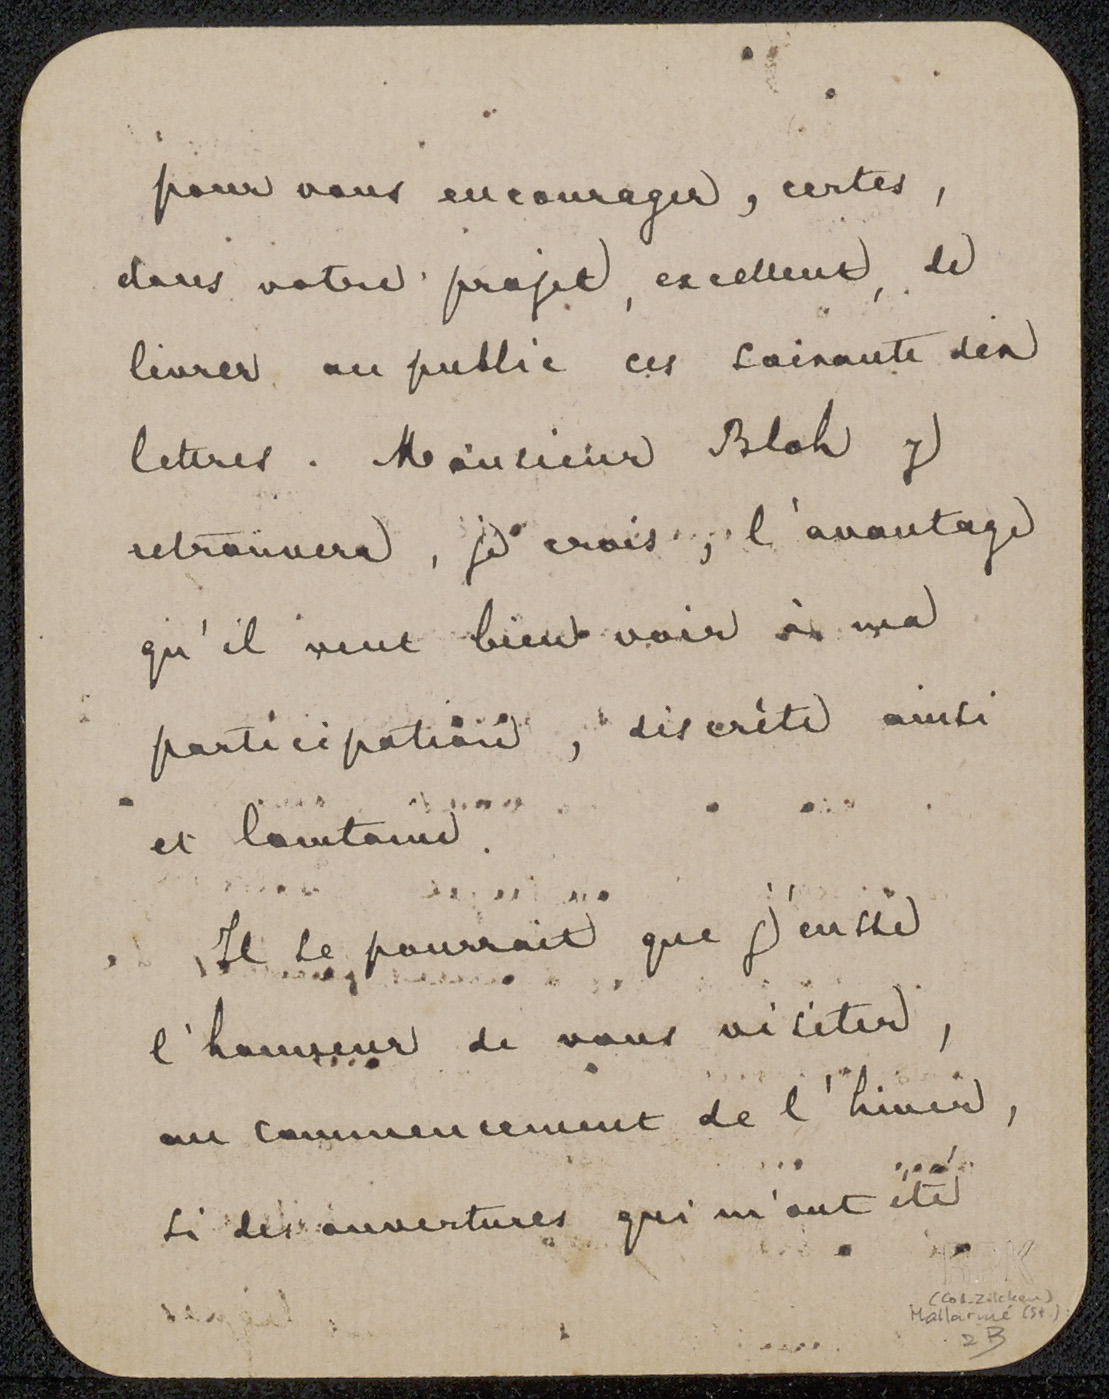 pour vous encourager, certes,
dans votre projet, excellent, de
livrer au public ces soixante dix
lettres. Monsieur Blok y
retrouvera, je crois, l'avantage
qu'il veut bien voir à ma
participation, discrète ainsi
et lointaine.
Il se pourrait que j'eusse
l'honneur de vous visiter,
au commencement de l'hiver,
si des ouvertures qui m'ont été
RPK
(Coll. Zilcken)
Mallarmé (St.)
2B